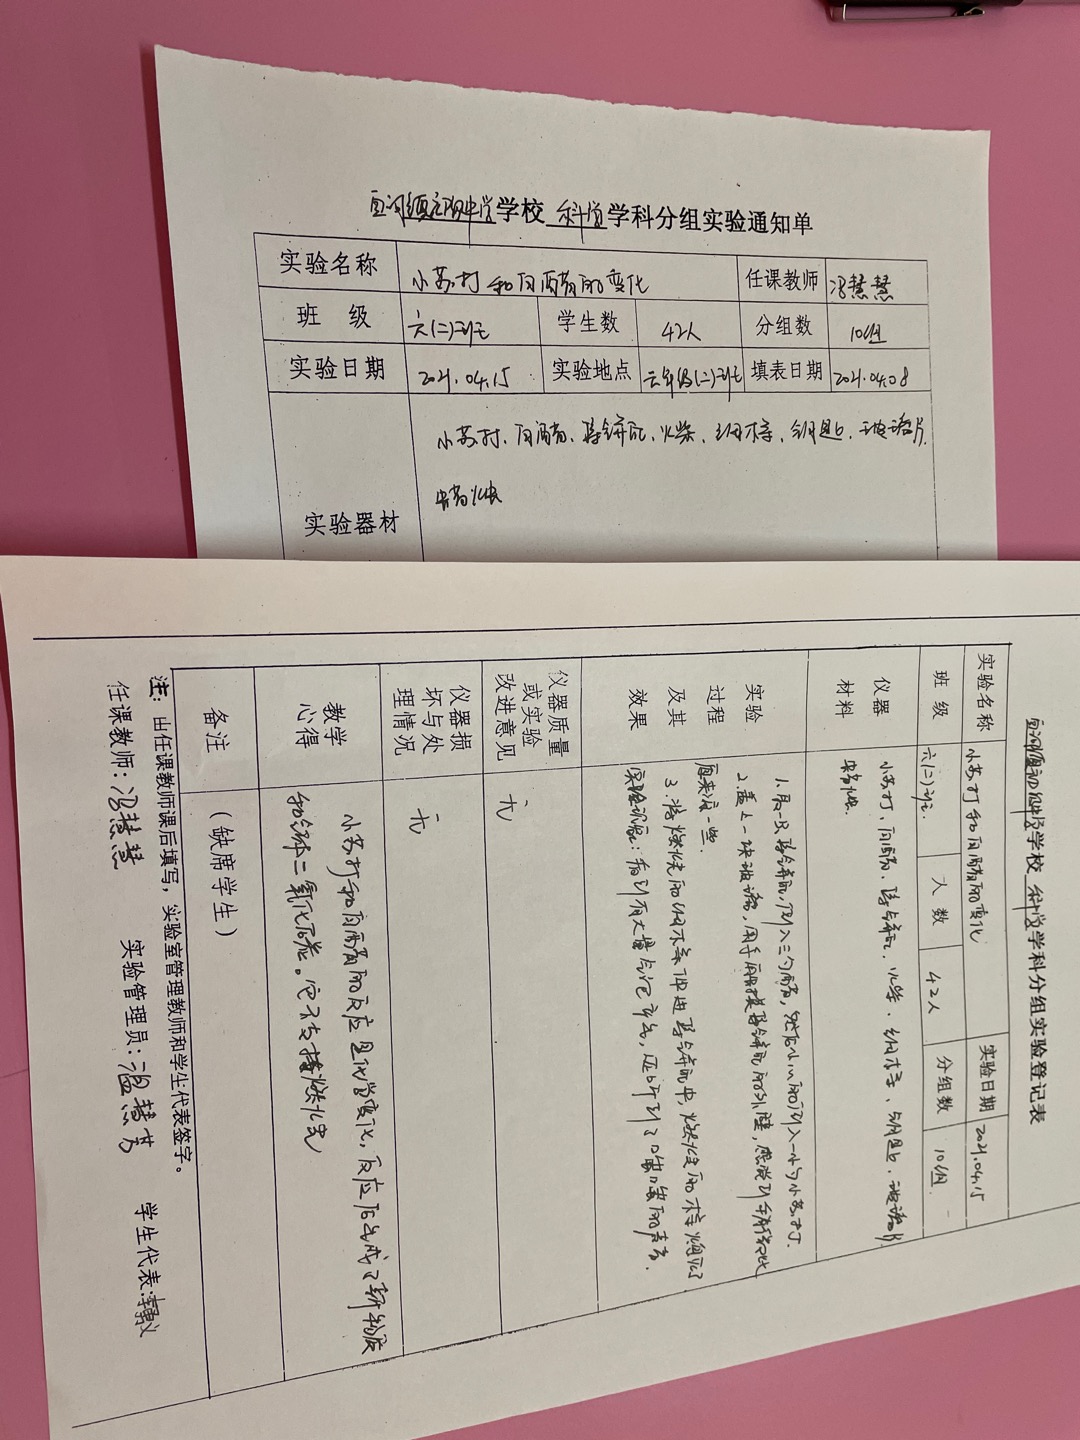 学校 科学学科分组实验通知单
实验名称 小苏打和白醋的变化 任课教师 冯慧慧
班 级 六(二)班 学生数 42人 分组数 10组
实验日期 2021.04.15 实验地点 六年级(二)班 填表日期 2021.04.08
小苏打、白醋、集气瓶、火柴、细木条、钥匙、玻璃片
实验器材
学校 科学学科分组实验登记表
实验名称 小苏打和白醋的变化 实验日期 2021.04.15
班 级 六(二)班 人 数 42人 分组数 10组
仪器材料 小苏打、白醋、集气瓶、火柴、细木条、钥匙、玻璃片
实验过程及其效果
1.取一只集气瓶,倒入三勺醋,然后小心的倒入一小勺小苏打.
2.盖上一块玻璃,用手触摸集气瓶的外壁,感觉到
原来凉一些.
3.将燃烧的细木条伸进集气瓶中,燃烧的木条熄灭了
实验现象:看到有大量气泡产生,还听到了嗞嗞的声音.
仪器质量或实验改进意见 无
仪器损坏与处理情况 无
教学心得
小苏打和白醋的反应是化学变化,反应后生成了新物质
和气体二氧化碳。它不支持燃烧
备注 (缺席学生)
注:由任课教师课后填写,实验室管理教师和学生代表签字。
任课教师:冯慧慧 实验管理员:温慧芳 学生代表: